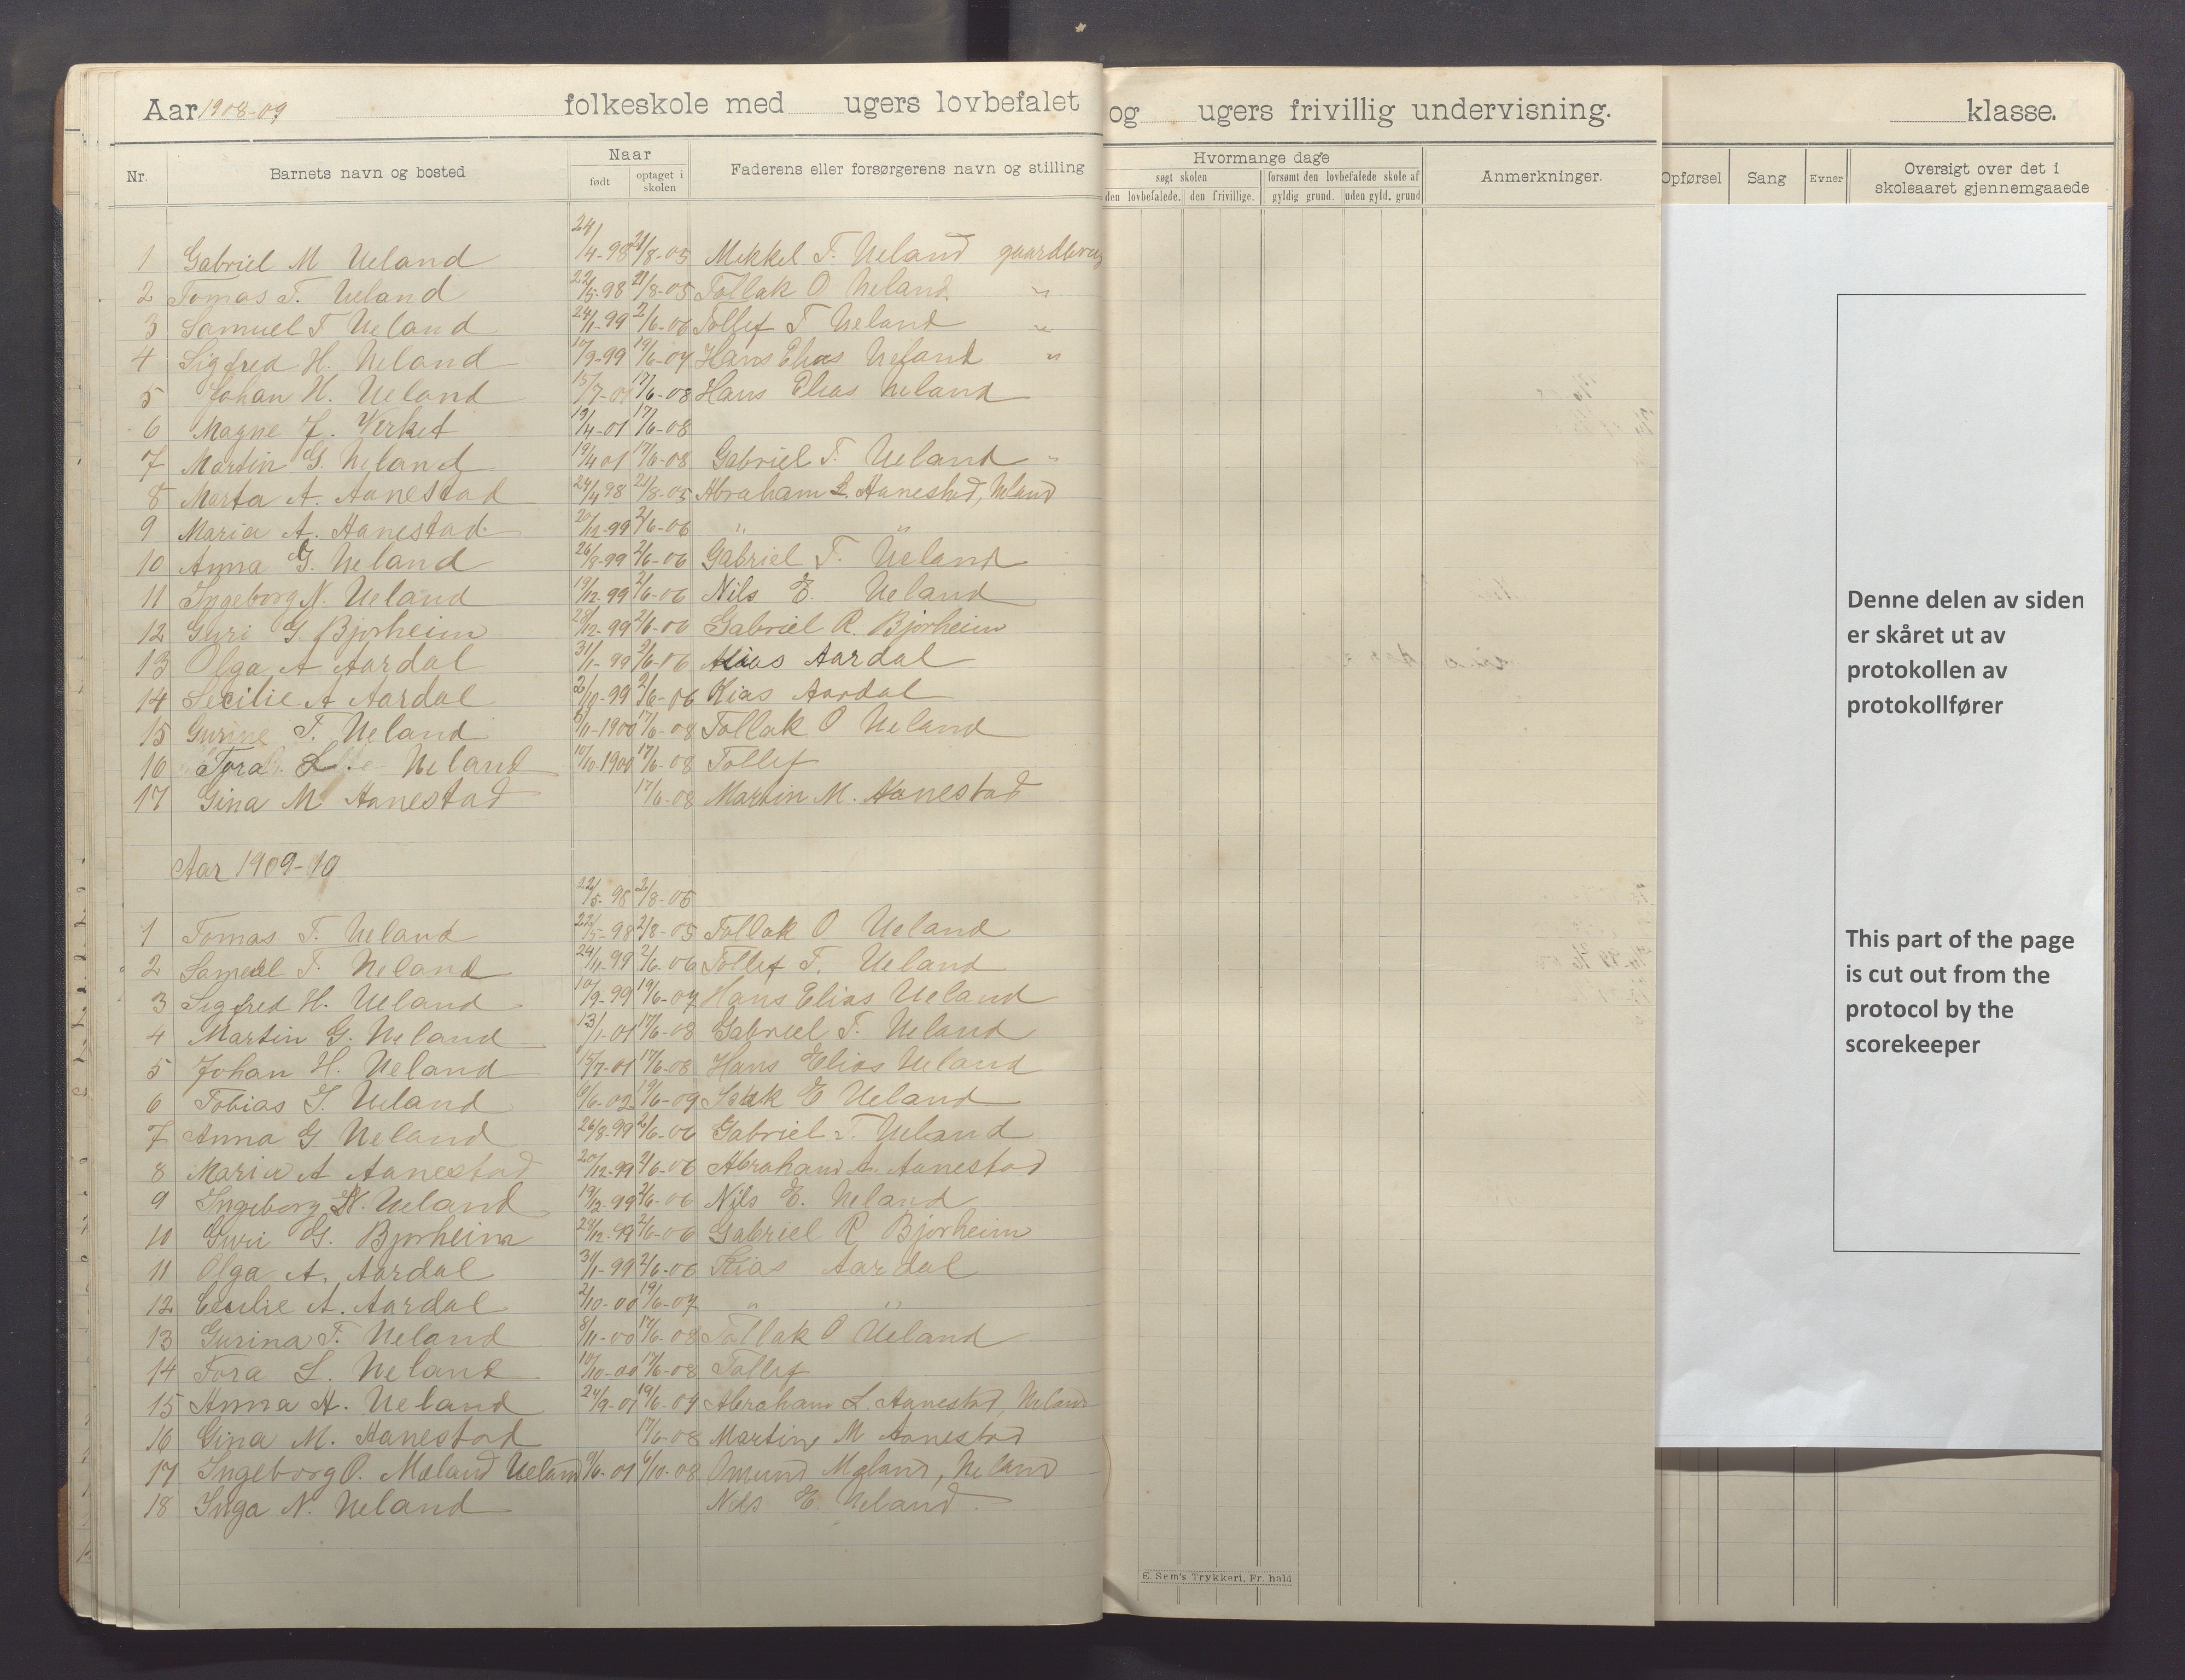 Aar 1908-09 folkeskole med ugers lovbefalet og ugers frivillig undervisning. klasse.
Nr. Barnets navn og bosted Naar født optaget i skolen Faderens eller forsørgerens navn og stilling Hvormange dage søgt skolen den lovbefalede. den frivillige. forsømt den lovbefalede skole af gyldig grund. uden gyld. grund Anmerkninger. Opførsel Sang Evner Oversigt over det i skoleaaret gjennemgaaede
1 Gabriel M Ueland 24/4-98 21/8-05 Mikkel T. Ueland
2 Tomas T. Ueland 22/5-98 21/8-05 Tollak O Ueland "
3 Samuel T Ueland 24/11-99 2/6-06 Tollef T Ueland "
4 Sigfred H. Ueland 10/9-99 19/6-07 Hans Elias Ueland "
5 Johan H. Ueland 15/7-01 17/6-08 Hans Elias Ueland
6 Magne J. Virket 19/4-01 17/6-08
7 Martin G. Ueland 19/4 01 17/6-08 Gabriel T. Ueland "
8 Marta A. Aanestad 24/4 98 21/8-05 Abraham L. Aanestad, Ueland
9 Maria A. Aanestad 20/12-99 2/6-06 " "
10 Anna G. Ueland 26/8-99 2/6-06 Gabriel T. Ueland
11 Ingeborg N. Ueland 19/12-99 2/6-06 Nils E. Ueland
12 Guri G. Bjorheim 28/12-99 2/6-06 Gabriel R. Bjorheim
13 Olga A Aardal 31/1-99 2/6-06 Aardal
14 Secilie A Aardal 2/10-99 2/6-06 Kias Aardal
15 Gurine T. Ueland /11-1900 17/6-08 Tollak O Ueland
16 Tora L. Ueland 10/10-1900 17/6-08 Tollef
17 Gina M Aanestad 17/6-08 Martin M. Aanestad
Aar 1909-10
22/5-98 2/8-05
1 Tomas T. Ueland 22/5-98 2/8-05 Tollak O Ueland
2 Samuel T. Ueland 24/11-99 2/6-06 Tollef T. Ueland
3 Sigfred H. Ueland 10/9-99 19/6-07 Hans Elias Ueland
4 Martin G. Ueland 13/1-01 17/6-08 Gabriel T. Ueland
5 Johan H. Ueland 15/7-01 17/6-08 Hans Elias Ueland
6 Tobias I. Ueland 6/6-02 19/6-09 Isak E Ueland
7 Anna G Ueland 26/8-99 2/6-06 Gabriel T. Ueland
8 Maria A Aanestad 20/12-99 2/6-06 Abraham Aanestad
9 Ingeborg N. Ueland 19/12-99 2/6-06 Nils E. Ueland
10 Guri G. Bjorheim 28/12-99 2/6-06 Gabriel R Bjorheim
11 Olga A. Aardal 31/1-99 2/6-06 Kias Aardal
12 Cecilie A. Aardal 2/10-00 19/6-07 " "
13 Gurina T. Ueland 8/11-00 17/6-08 Tollak O Ueland
14 Tora L. Ueland 10/10-00 17/6-08 Tollef
15 Anna A. Ueland 24/9-01 19/6-09 Abraham L. Aanestad, Ueland
16 Gina M. Aanestad 17/6-08 Martin M Aanestad
17 Ingeborg O. Mæland Ueland 9/6-01 6/10-08 Omund Mæland, Ueland
18 Inga N. Ueland Nils E. Ueland.
E. Sem's Trykkeri, Fr.hald
Denne delen av siden
er skåret ut av
protokollen av
protokollfører
This part of the page
is cut out from the
protocol by the
scorekeeper